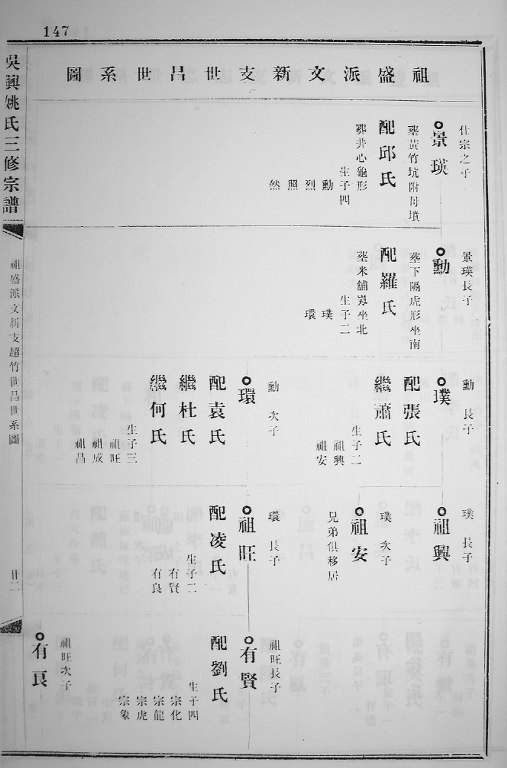 147
祖盛派文新支世昌世系圖
吳興姚氏三修宗譜
祖盛派文新支超竹世昌世系圖
廿二
仕宗之子
景瑛
葬黃竹坑附母墳
配邱氏
葬井心龜形
生子四
勳
烈
照
然
景瑛長子
勳
葬下隔虎形坐南
配羅氏
坐北
生子二
璞
環
勳長子
璞
配張氏
繼蕭氏
生子二
祖興
祖安
勳次子
環
配袁氏
繼杜氏
繼何氏
生子三
祖旺
祖成
祖昌
璞長子
祖興
璞次子
祖安
兄弟俱移居
環長子
祖旺
配凌氏
生子二
有賢
有良
祖旺長子
有賢
配劉氏
生子四
宗化
宗龍
宗虎
宗象
祖旺次子
有良